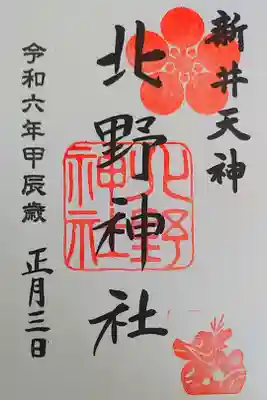 新井天神
北野神社
北野
神社
令和六年甲辰歳 正月三日